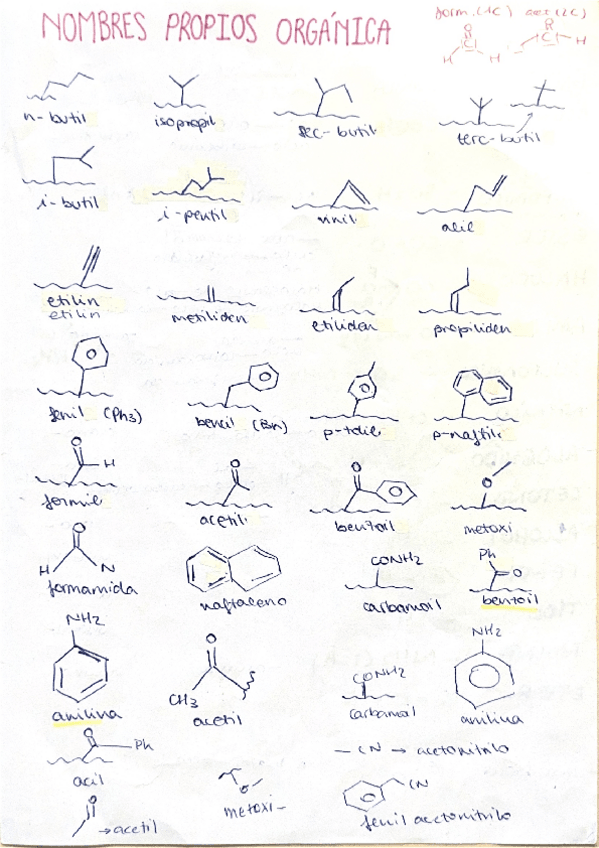 NOMBRES PROPIOS ORGÁNICA
form.(1C) acet(2C)
O
C
H H
O
C
H
n-butil isopropil sec-butil terc-butil
i-butil i-pentil vinil alil
etilin metiliden etiliden propiliden
etilin
fenil (Ph3) bencil (Bn) p-tolil p-naftil
O
H
O
O
O
formil acetil benzoil metoxi
O
H N
CONH2
Ph
O
formamida naftaceno carbamoil benzoil
NH2
O
CH3
CONH2
NH2
anilina acetil carbamoil anilina
O
Ph
acil
- CN → acetonitrilo
O
metoxi-
CN
fenil acetonitrilo
O
→ acetil